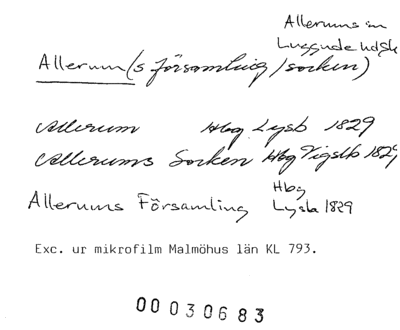 Allerums sn
Luggude hdsk
Allerum(s församling/socken)
Allerum Hbg Lysb 1829
Allerums Socken Hbg Vigslb 1829
Allerums Församling Hbg
Lysb 1829
Exc. ur mikrofilm Malmöhus län KL 793.
00030683